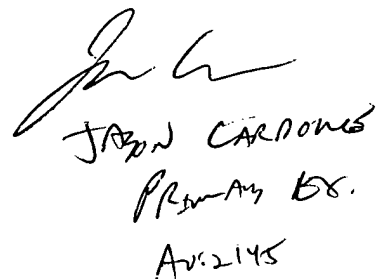 JASON CARDONE
PRIMARY EX.
AU: 2145